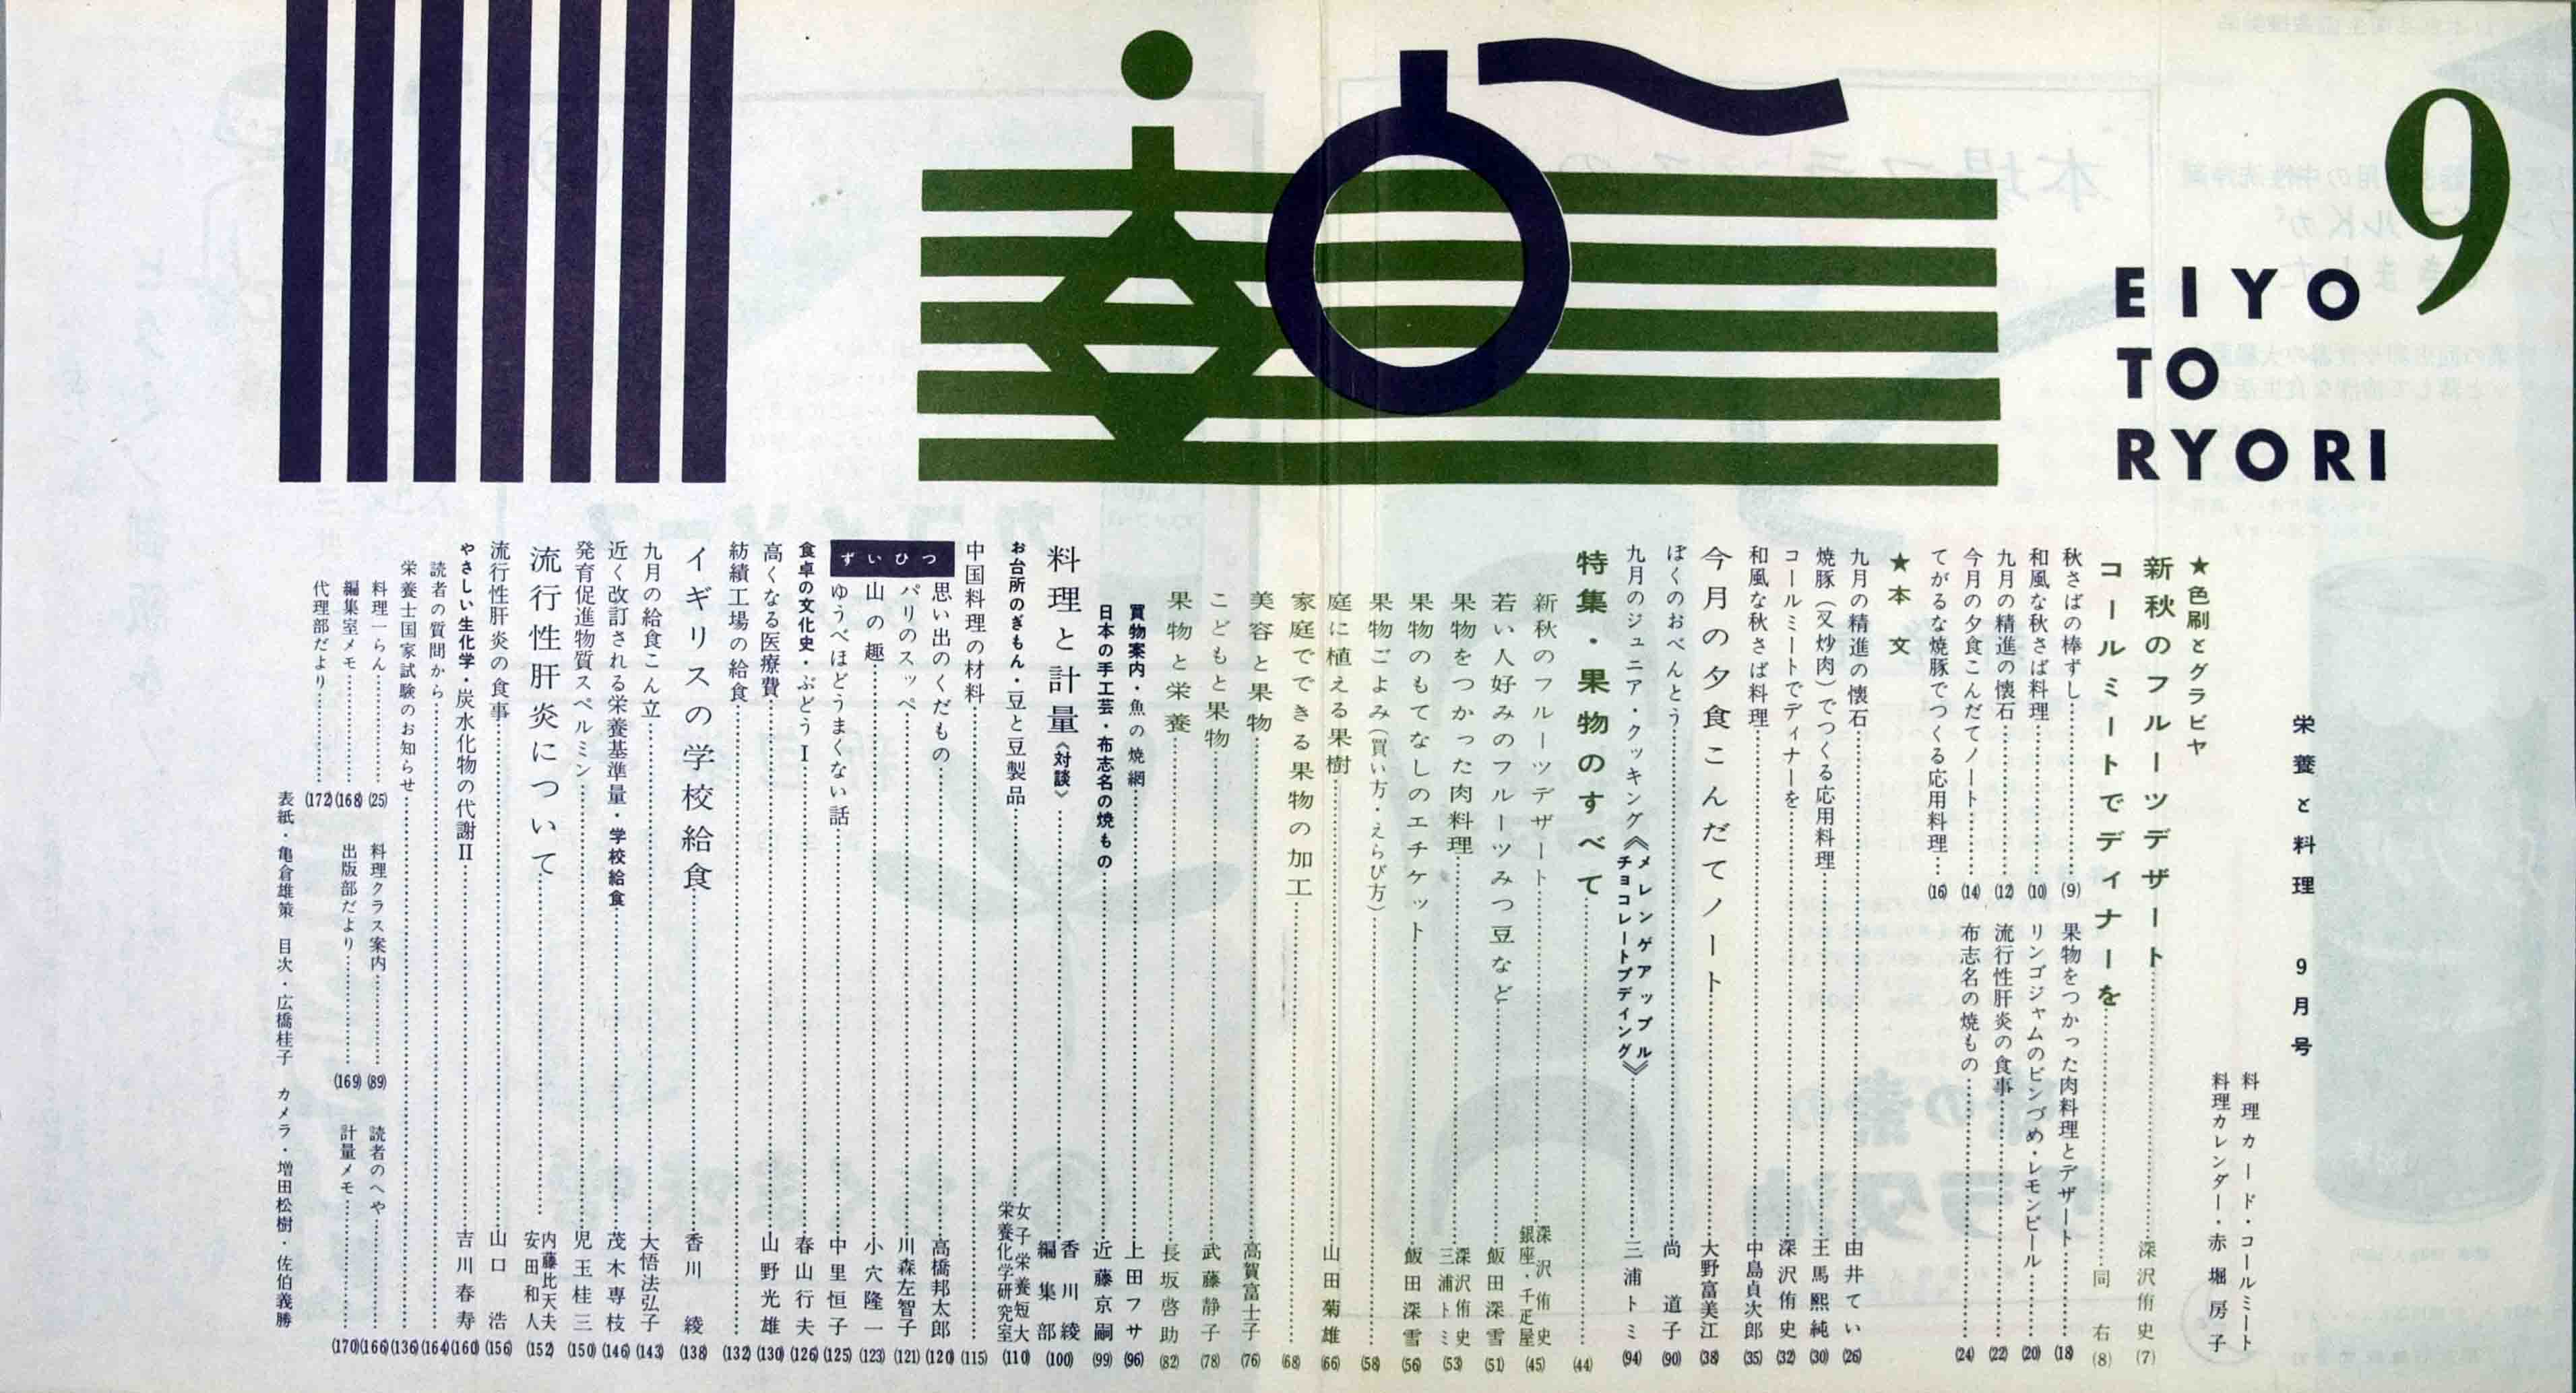 9
EIYO
TO
RYORI
栄養と料理 9月号
料理カード・コールミート
料理カレンダー・赤堀房子
★色刷とグラビヤ
新秋のフルーツデザート……深沢侑史(7)
コールミートでディナーを……同右(8)
秋さばの棒ずし……(9)
和風な秋さば料理……(10)
九月の精進の懐石……(12)
今月の夕食こんだてノート……(14)
てがるな焼豚でつくる応用料理……(16)
果物をつかった肉料理とデザート……(18)
リンゴジャムのビンづめ・レモンピール……(20)
流行性肝炎の食事……(22)
布志名の焼もの……(24)
★本文
九月の精進の懐石……由井てい(26)
焼豚(叉炒肉)でつくる応用料理……王馬熙純(30)
コールミートでディナーを……深沢侑史(32)
和風な秋さば料理……中島貞次郎(35)
今月の夕食こんだてノート……大野富美江(38)
ぼくのおべんとう……尚道子(90)
九月のジュニア・クッキング《メレンゲアップル チョコレートプディング》……三浦トミ(94)
特集・果物のすべて……(44)
新秋のフルーツデザート……深沢侑史 銀座・千疋屋(45)
若い人好みのフルーツみつ豆など……飯田深雪(51)
果物をつかった肉料理……深沢侑史 三浦トミ(53)
果物のもてなしのエチケット……飯田深雪(56)
果物ごよみ(買い方・えらび方)……(58)
庭に植える果樹……山田菊雄(66)
家庭でできる果物の加工……(68)
美容と果物……高賀富士子(76)
こどもと果物……武藤静子(78)
果物と栄養……長坂啓助(82)
買物案内・魚の焼網……上田フサ(96)
日本の手工芸・布志名の焼もの……近藤京嗣(99)
料理と計量《対談》……香川綾 編集部(100)
お台所のぎもん・豆と豆製品……女子栄養短大 栄養化学研究室(110)
中国料理の材料……(115)
ずいひつ
思い出のくだもの……高橋邦太郎(120)
パリのスッペ……川森左智子(121)
山の趣……小穴隆一(123)
ゆうべほどうまくない話……中里恒子(125)
食卓の文化史・ぶどうI……春山行夫(126)
高くなる医療費……山野光雄(130)
紡績工場の給食……(132)
イギリスの学校給食……香川綾(138)
九月の給食こん立……大悟法弘子(143)
近く改訂される栄養基準量・学校給食……茂木専枝(146)
発育促進物質スペルミン……児玉桂三(150)
流行性肝炎について……内藤比天夫 安田和人(152)
流行性肝炎の食事……山口浩(156)
やさしい生化学・炭水化物の代謝II……吉川春寿(160)
読者の質問から……(164)
栄養士国家試験のお知らせ……(136)
料理一らん……(25)
料理クラス案内……(89)
読者のへや……(166)
編集室メモ……(168)
出版部だより……(169)
計量メモ……(170)
代理部だより……(172)
表紙・亀倉雄策 目次・広橋桂子 カメラ・増田松樹・佐伯義勝